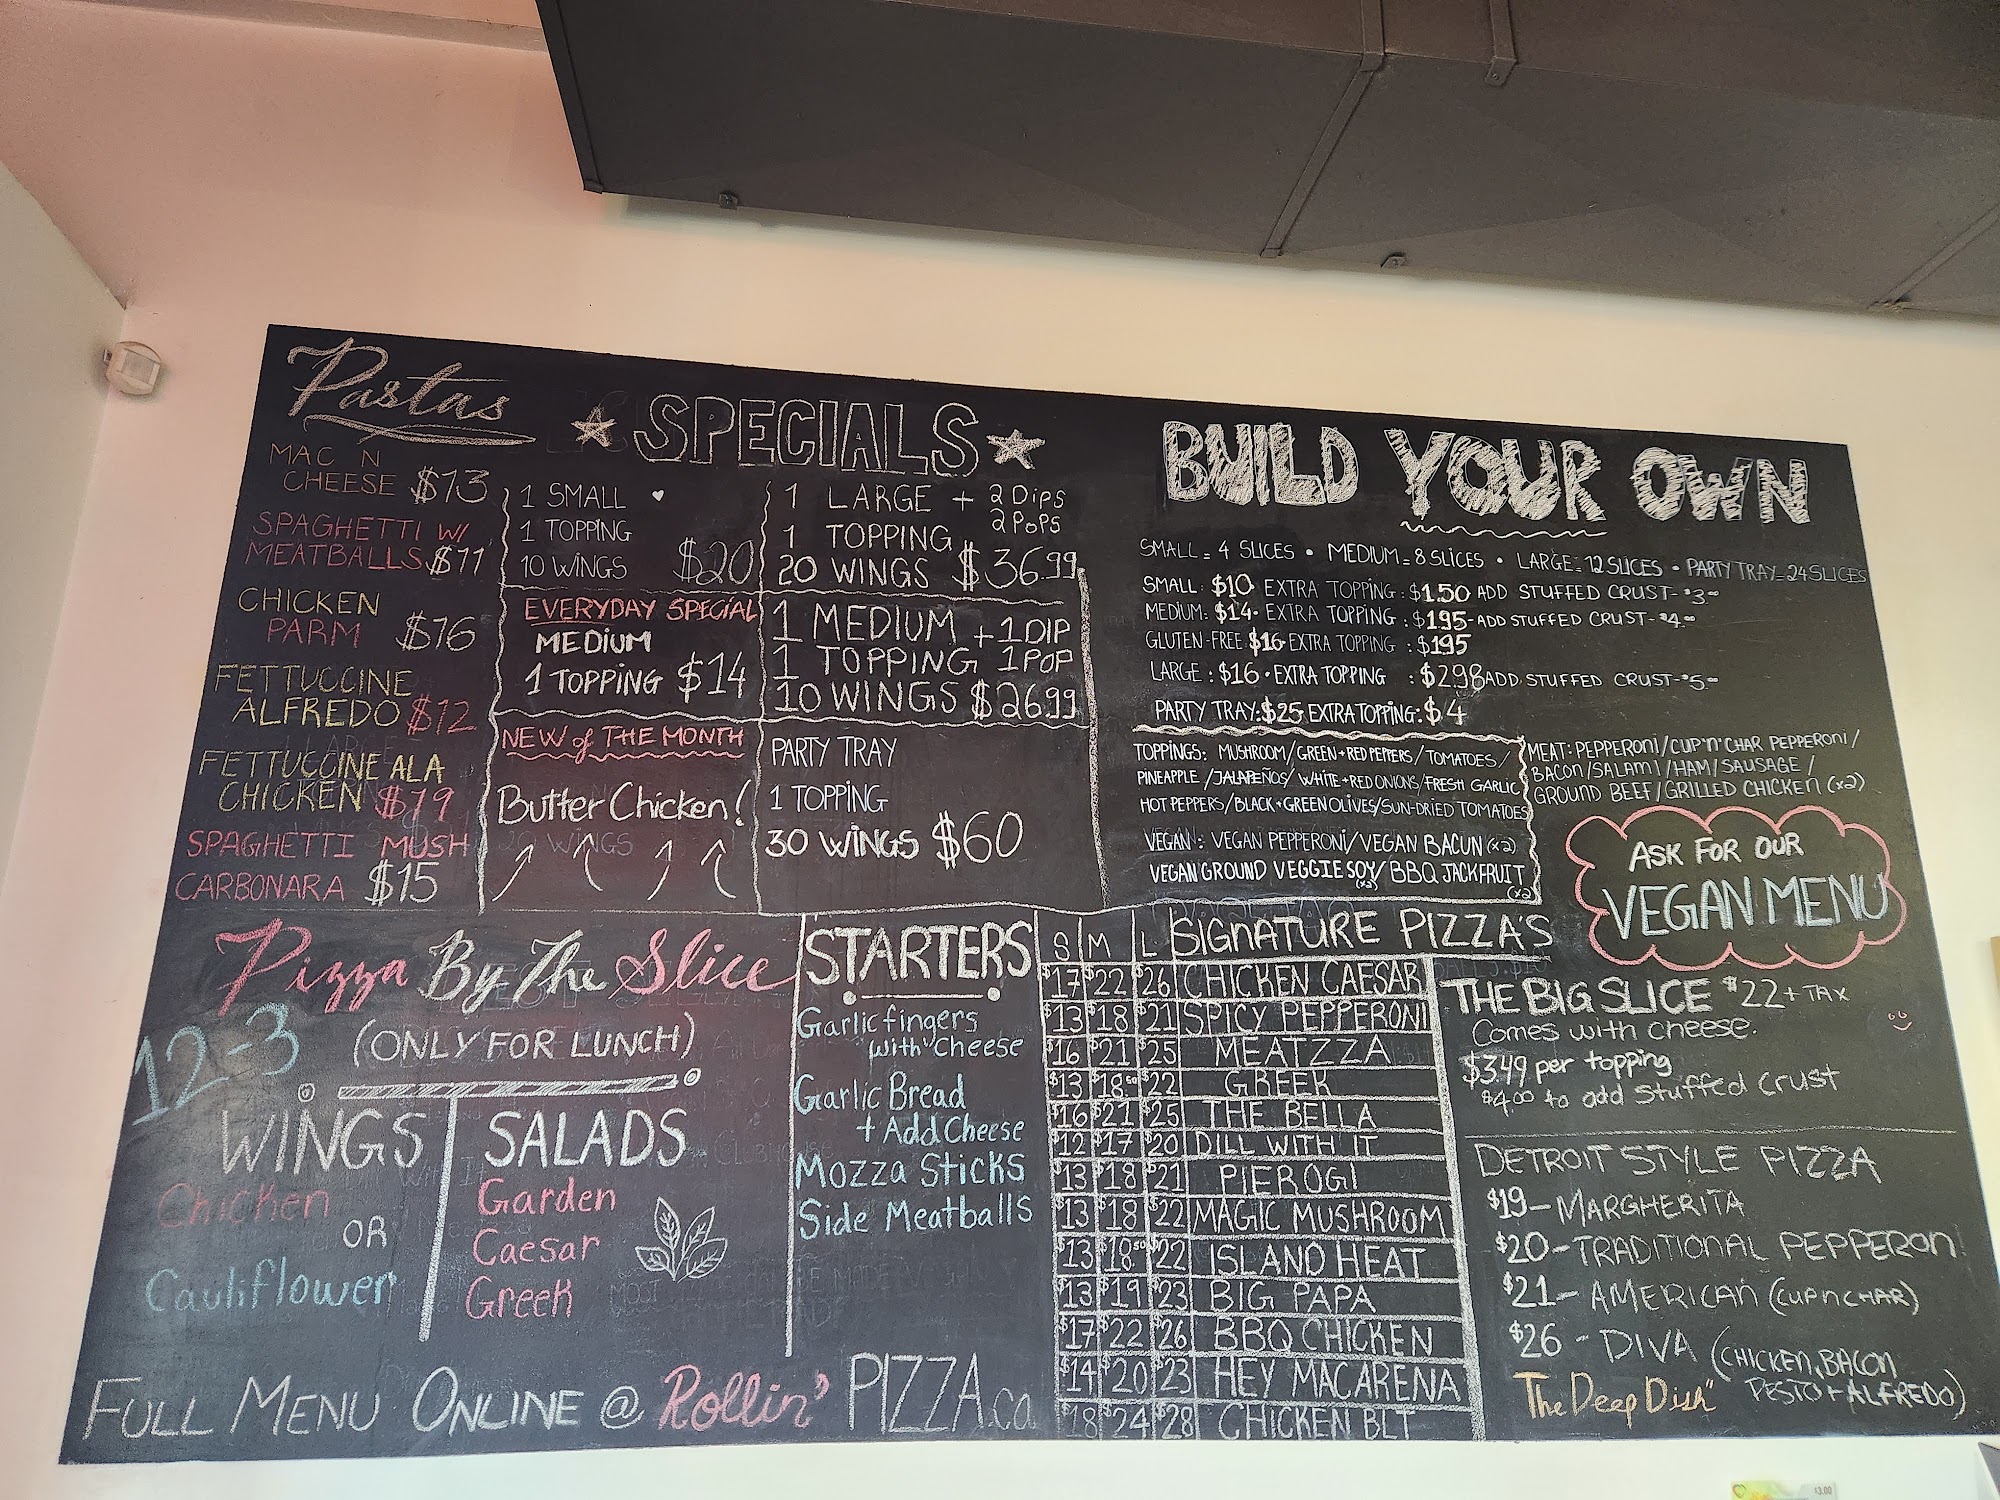 Pastas
MAC N
CHEESE $13
SPAGHETTI W/
MEATBALLS $11
CHICKEN
PARM $16
FETTUCCINE
ALFREDO $12
FETTUCCINE ALA
CHICKEN $19
SPAGHETTI MUSH
CARBONARA $15
SPECIALS
1 SMALL
1 TOPPING
10 WINGS $20
EVERYDAY SPECIAL
MEDIUM
1 TOPPING $14
NEW of THE MONTH
Butter Chicken!
20 WINGS
1 LARGE + 2 Dips
2 Pops
1 TOPPING
20 WINGS $36.99
1 MEDIUM + 1 DIP
1 TOPPING 1 POP
10 WINGS $26.99
PARTY TRAY
1 TOPPING
30 WINGS $60
BUILD YOUR OWN
SMALL = 4 SLICES • MEDIUM = 8 SLICES • LARGE = 12 SLICES • PARTY TRAY = 24 SLICES
SMALL: $10 EXTRA TOPPING: $1.50 ADD STUFFED CRUST - $3.00
MEDIUM: $14 • EXTRA TOPPING: $1.95 - ADD STUFFED CRUST - $4.00
GLUTEN-FREE $16 EXTRA TOPPING: $1.95
LARGE: $16 • EXTRA TOPPING: $2.98 ADD STUFFED CRUST - $5.00
PARTY TRAY: $25 EXTRA TOPPING: $4
TOPPINGS: MUSHROOM/GREEN + RED PEPPERS/TOMATOES/
PINEAPPLE/JALAPEÑOS/WHITE + RED ONIONS/FRESH GARLIC
HOT PEPPERS/BLACK + GREEN OLIVES/SUN-DRIED TOMATOES
VEGAN: VEGAN PEPPERONI/VEGAN BACUN (x2)
VEGAN GROUND VEGGIE SOY (x2)/BBQ JACKFRUIT (x2)
MEAT: PEPPERONI/CUP'N'CHAR PEPPERONI/
BACON/SALAMI/HAM/SAUSAGE/
GROUND BEEF/GRILLED CHICKEN (x2)
ASK FOR OUR
VEGAN MENU
Pizza By The Slice
(ONLY FOR LUNCH)
12-3
WINGS
Chicken
OR
Cauliflower
SALADS
Garden
Caesar
Greek
STARTERS
Garlic fingers
"with" cheese
Garlic Bread
+ Add Cheese
Mozza Sticks
Side Meatballs
S M L SIGNATURE PIZZA'S
$17 $22 $26 CHICKEN CAESAR
$13 $18 $21 SPICY PEPPERONI
$16 $21 $25 MEATZZA
$13 $18.50 $22 GREEK
$16 $21 $25 THE BELLA
$12 $17 $20 DILL WITH IT
$13 $18 $21 PIEROGI
$13 $18 $22 MAGIC MUSHROOM
$13 $18.50 $22 ISLAND HEAT
$13 $19 $23 BIG PAPA
$17 $22 $26 BBQ CHICKEN
$14 $20 $23 HEY MACARENA
$18 $24 $28 CHICKEN BLT
THE BIG SLICE $22 + TAX
Comes with cheese.
$3.49 per topping
$4.00 to add stuffed crust
DETROIT STYLE PIZZA
$19 - MARGHERITA
$20 - TRADITIONAL PEPPERONI
$21 - AMERICAN (CUP N CHAR)
$26 - DIVA (CHICKEN, BACON
PESTO + ALFREDO)
The Deep Dish"
FULL MENU ONLINE @ Rollin' PIZZA.ca
$3.00